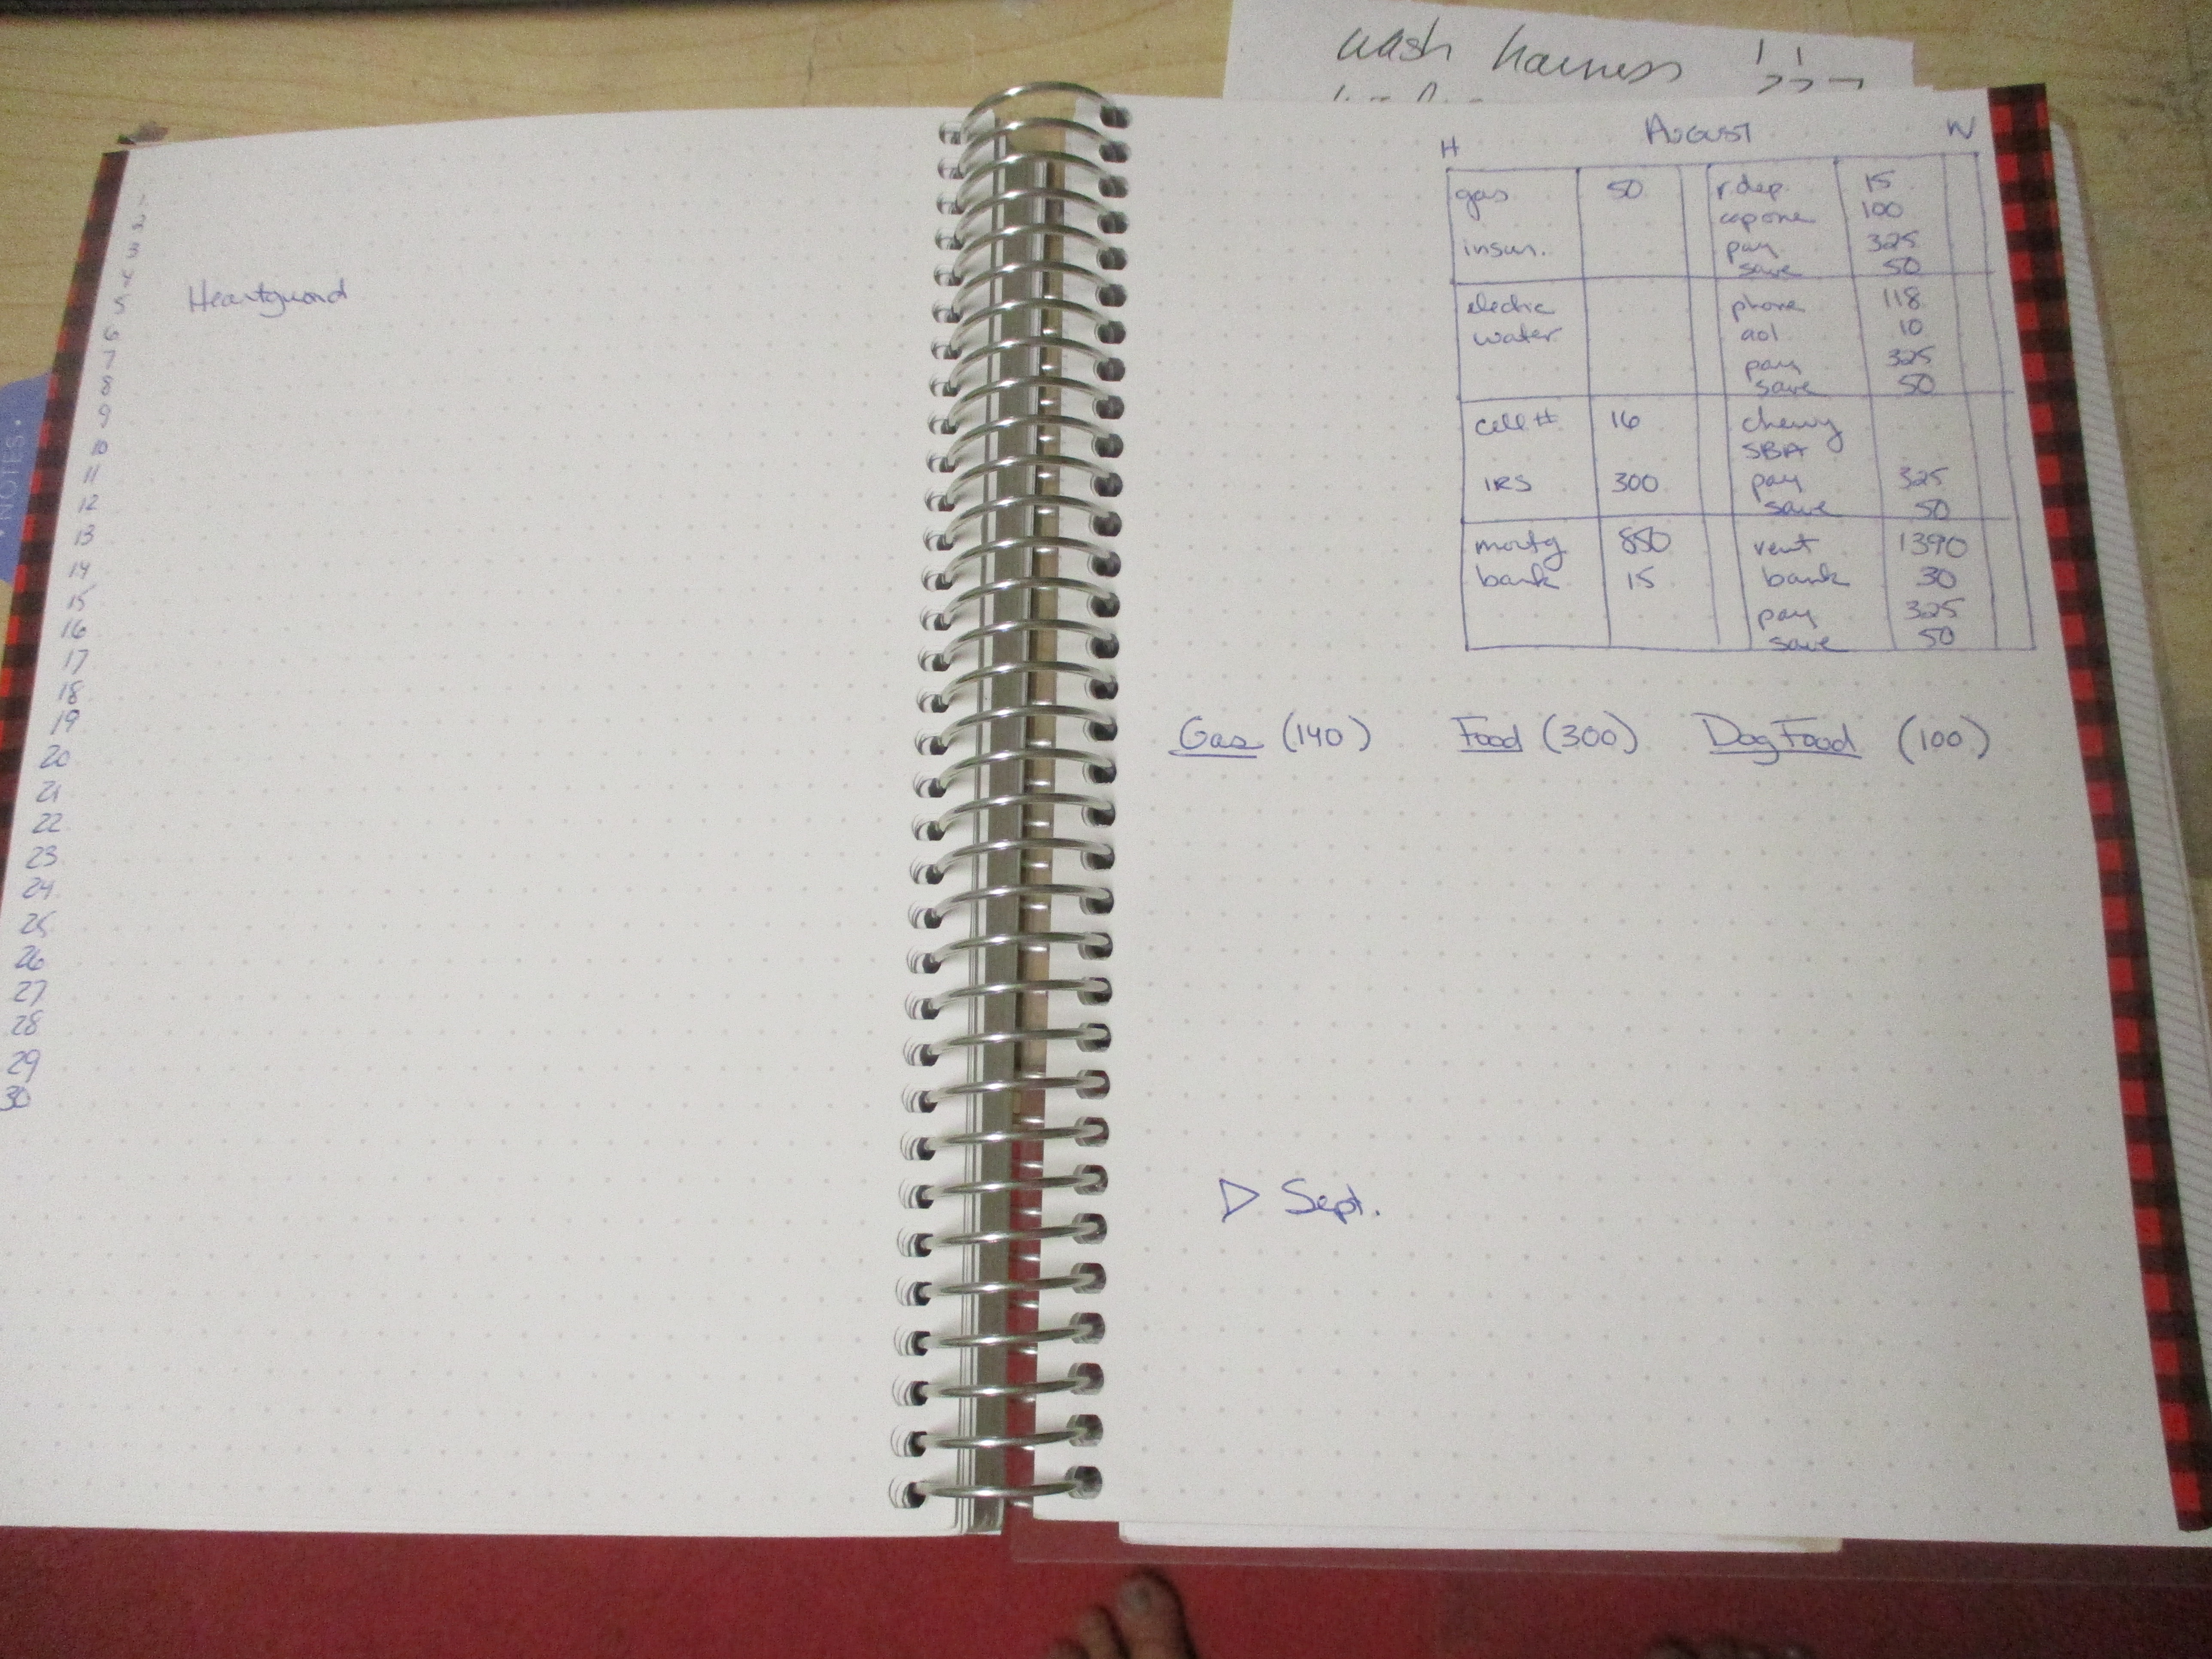 wash harness
NOTES.
1
2
3
4
5 Heartguard
6
7
8
9
10
11
12
13
14
15
16
17
18
19
20
21
22
23
24
25
26
27
28
29
30
H August W
gas 50 r.dep. 15
cap one 100
insur. pay 325
save 50
electric phone 118
water aol 10
pay 325
save 50
cell # 16 chewy
SBA
IRS 300 pay 325
save 50
mortg 850 rent 1390
bank 15 bank 30
pay 325
save 50
Gas (140) Food (300) Dog Food (100)
▷ Sept.